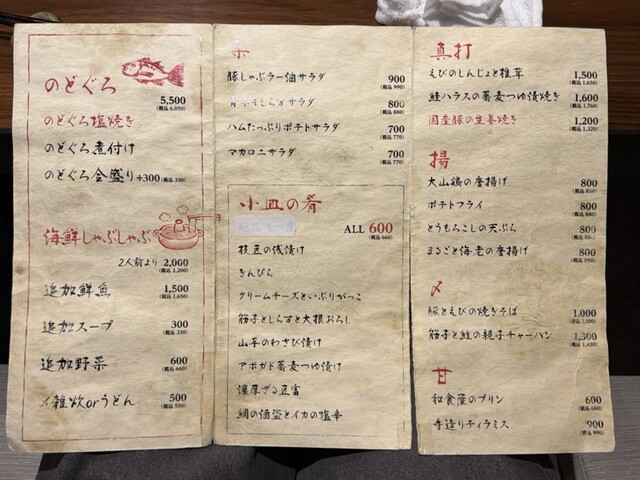 のどぐろ
5,500
(税込 6,050)
のどぐろ塩焼き
のどぐろ煮付け
のどぐろ全盛り+300(税込 330)
海鮮しゃぶしゃぶ
2人前より 2,000
(税込 2,200)
追加鮮魚 1,500
(税込 1,650)
追加スープ 300
(税込 330)
追加野菜 600
(税込 660)
〆雑炊orうどん 500
(税込 550)
豚しゃぶラー油サラダ 900
(税込 990)
しらすサラダ 800
(税込 880)
ハムたっぷりポテトサラダ 700
(税込 770)
マカロニサラダ 700
(税込 770)
小皿の肴
ALL 600
(税込 660)
枝豆の浅漬け
きんぴら
クリームチーズといぶりがっこ
筋子としらすと大根おろし
山芋のわさび漬け
アボガド蕎麦つゆ漬け
濃厚ざる豆富
鯛の酒盗とイカの塩辛
真打
えびのしんじょと椎茸 1,500
(税込 1,650)
鮭ハラスの蕎麦つゆ漬焼き 1,600
(税込 1,760)
国産豚の生姜焼き 1,200
(税込 1,320)
揚
大山鶏の唐揚げ 800
(税込 880)
ポテトフライ 800
(税込 880)
とうもろこしの天ぷら 800
まるごと海老の唐揚げ 800
〆
豚とえびの焼きそば 1,000
(税込 1,100)
筋子と鮭の親子チャーハン 1,300
(税込 1,430)
甘
和食屋のプリン 600
(税込 660)
手造りティラミス 900
(税込 990)